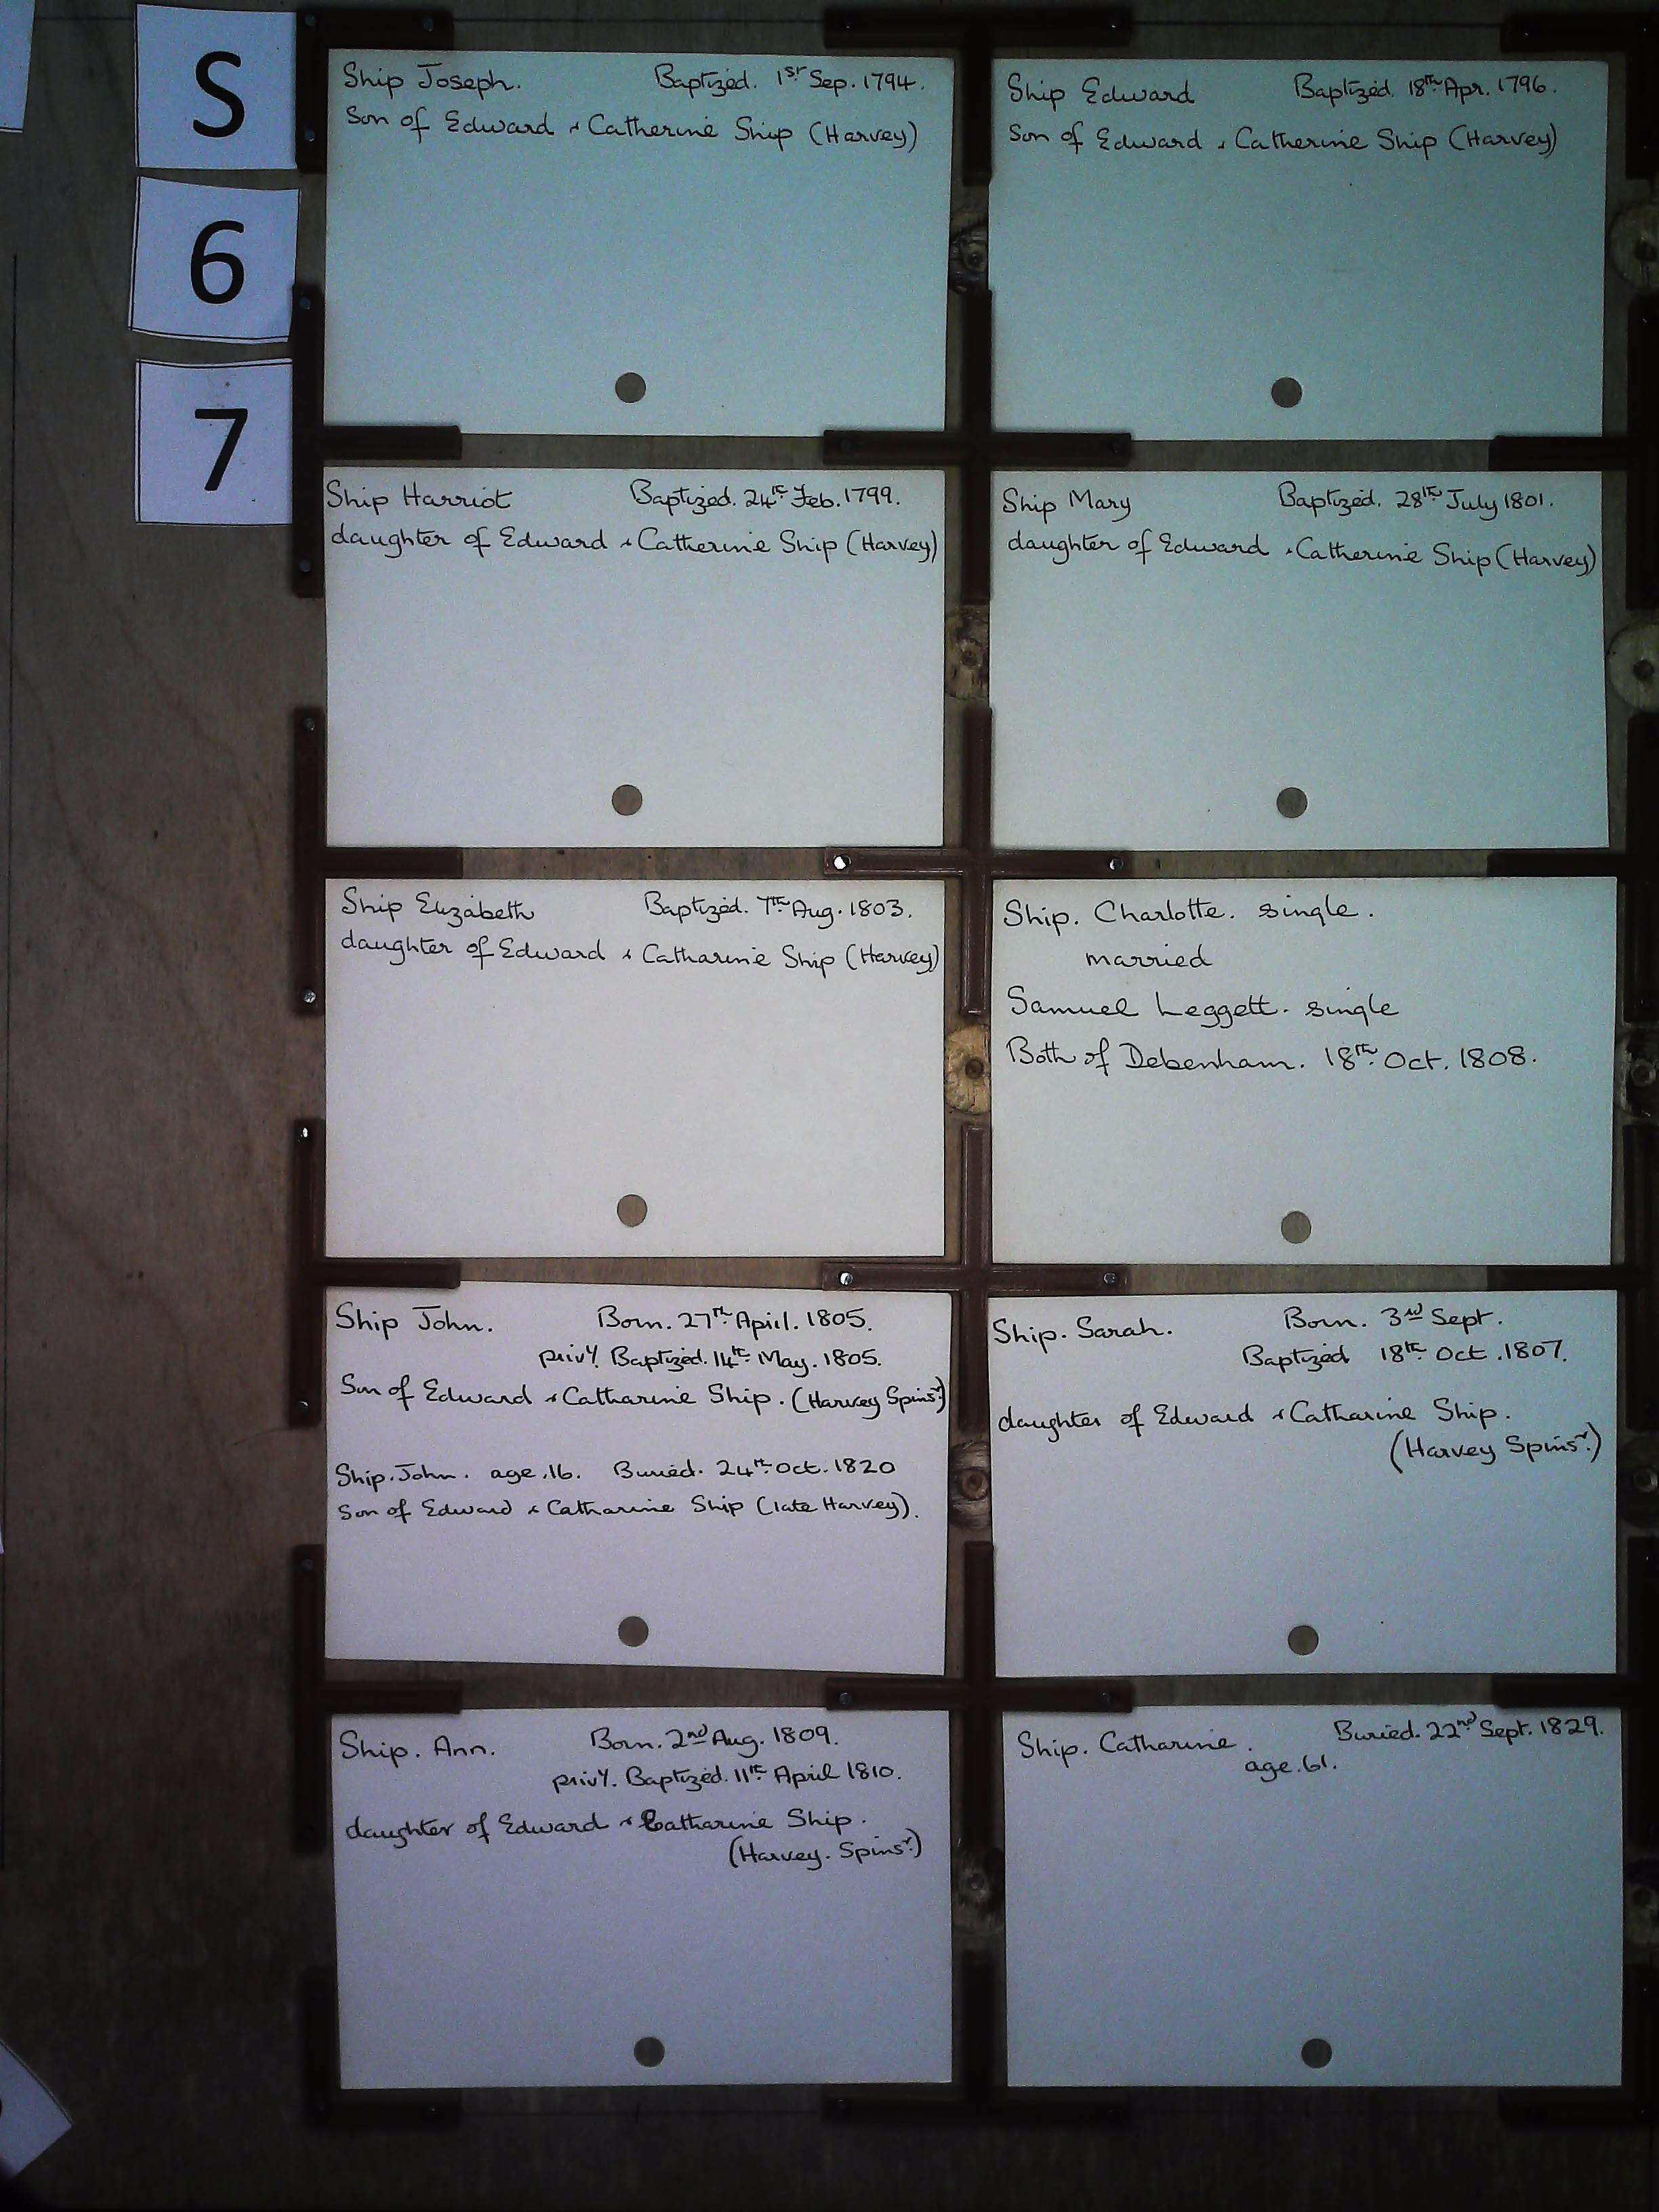 S
6
7
Ship Joseph. Baptized. 1st Sep. 1794.
Son of Edward & Catherine Ship (Harvey)
Ship Edward Baptized. 18th Apr. 1796.
Son of Edward & Catherine Ship (Harvey)
Ship Harriot Baptized. 24th Feb. 1799.
daughter of Edward & Catherine Ship (Harvey)
Ship Mary Baptized. 28th July 1801.
daughter of Edward & Catherine Ship (Harvey)
Ship Elizabeth Baptized. 7th Aug. 1803.
daughter of Edward & Catharine Ship (Harvey)
Ship. Charlotte. single.
married
Samuel Leggett. single
Both of Debenham. 18th Oct. 1808.
Ship John. Born. 27th April. 1805.
privy. Baptized. 14th May. 1805.
Son of Edward & Catharine Ship. (Harvey Spinsr.)
Ship. John. age. 16. Buried. 24th Oct. 1820
Son of Edward & Catharine Ship (late Harvey).
Ship. Sarah. Born. 3rd Sept.
Baptized 18th Oct. 1807.
daughter of Edward & Catharine Ship.
(Harvey Spinsr.)
Ship. Ann. Born. 2nd Aug. 1809.
privy. Baptized. 11th April 1810.
daughter of Edward & Catharine Ship.
(Harvey. Spinsr.)
Ship. Catharine. Buried. 22nd Sept. 1829.
age. 61.